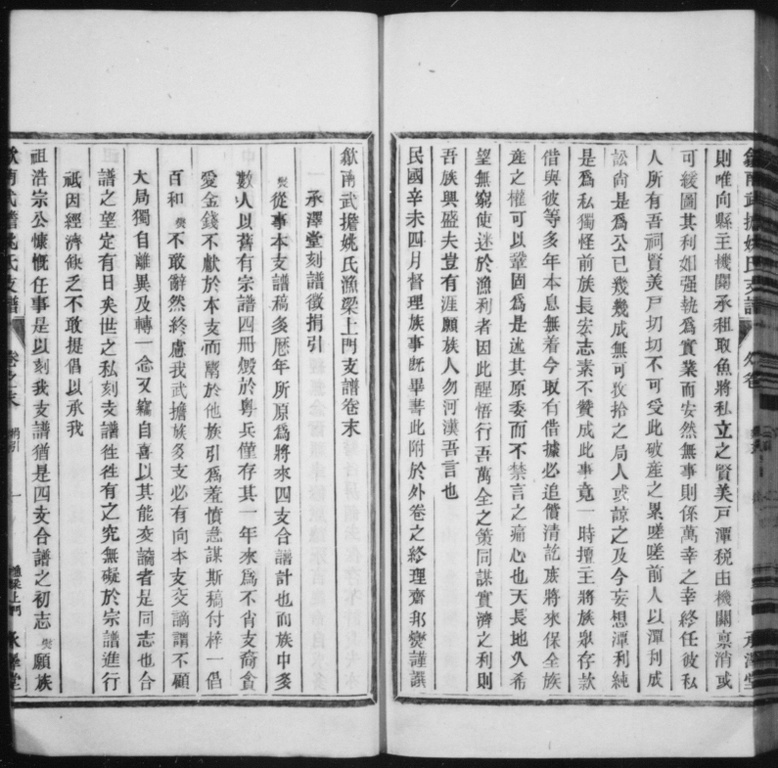 歙南武擔姚氏支譜 外卷 承澤堂
則唯向縣主機關承租取魚將私立之賢美戸潭税由機關禀消或
可緩圖其利如强執爲實業而安然無事則係萬幸之幸終任彼私
人所有吾祠賢美戸切切不可受此破産之累嗟嗟前人以潭利成
訟尚是爲公已幾幾成無可收拾之局人或諒之及今妄想潭利純
是爲私獨怪前族長安志素不贊成此事竟一時擅主將族衆存款
借與彼等多年本息無着今取有借據必追償清訖庶將來保全族
産之權可以鞏固爲是述其原委而不禁言之痛心也天長地久希
望無窮使迷於漁利者因此醒悟行吾萬全之策同謀實濟之利則
吾族興盛夫豈有涯願族人勿河漢吾言也
民國辛未四月督理族事旣畢書此附於外卷之終理齋邦爕謹譔
歙南武擔姚氏漁梁上門支譜卷末
承澤堂刻譜徵捐引
爕從事本支譜稿多厯年所原爲將來四支合譜計也而族中多
數人以舊有宗譜四册燬於粤兵僅存其一年來爲不肖支裔貪
愛金錢不獻於本支而鬻於他族引爲羞憤急謀斯稿付梓一倡
百和爕不敢辭然終慮我武擔族各支必有向本支交謫謂不顧
大局獨自離異及轉一念又竊自喜以其能交謫者是同志也合
譜之望定有日矣世之私刻支譜徃徃有之究無礙於宗譜進行
祗因經濟缺乏不敢提倡以承我
祖浩宗公慷慨任事是以刻我支譜猶是四支合譜之初志爕願族
歙南武擔姚氏支譜 卷之末 捐引 一 漁梁上門 承澤堂